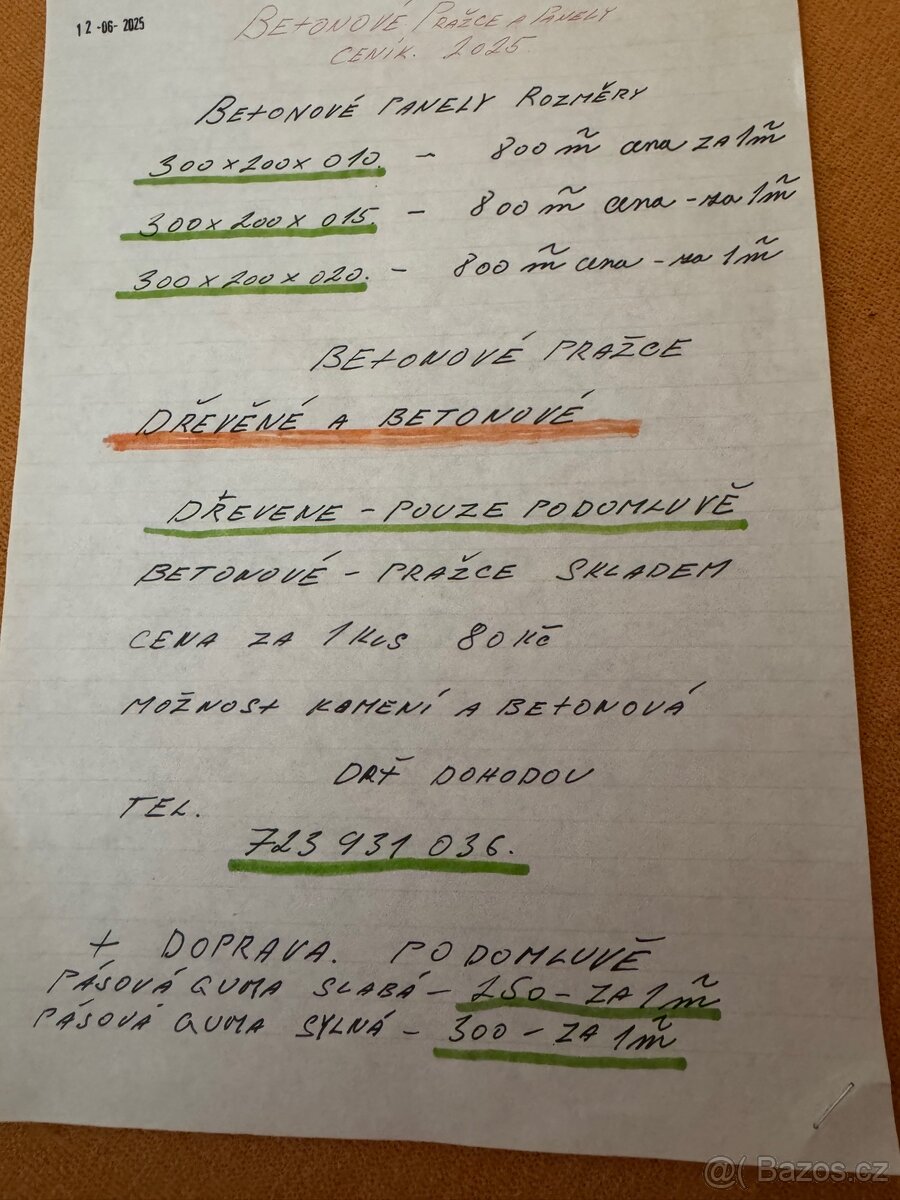 12-06-2025
BETONOVÉ PRAŽCE A PANELY
CENIK. 2025.
BETONOVÉ PANELY ROZMĚRY
300x200x010 - 800 m̃ cena za 1m̃
300x200x015 - 800 m̃ cena - za 1m̃
300x200x020. - 800 m̃ cena - za 1m̃
BETONOVÉ PRAŽCE
DŘEVĚNÉ A BETONOVÉ
DŘEVENE - POUZE PO DOMLUVĚ
BETONOVÉ - PRAŽCE SKLADEM
CENA ZA 1 KUS 80 KČ
MOŽNOST KAMENÍ A BETONOVÁ
DRŤ DOHODOU
TEL.
723 931 036.
+ DOPRAVA. PO DOMLUVĚ
PÁSOVÁ GUMA SLABÁ - 250 - ZA 1m̃
PÁSOVÁ GUMA SYLNÁ - 300 - ZA 1m̃
@( Bazos.cz